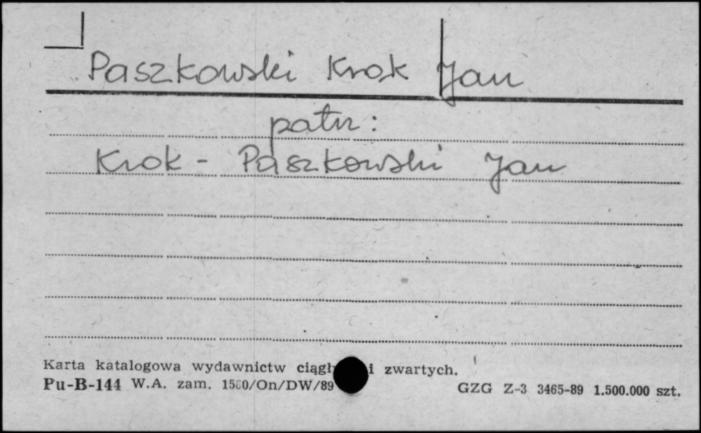 Paszkowski Krok Jan
patrz:
Krok - Paszkowski Jan
Karta katalogowa wydawnictw i zwartych.
Pu-B-144 W.A. zam. /On/DW/89
GZG Z-3 3465-89 1.500.000 szt.